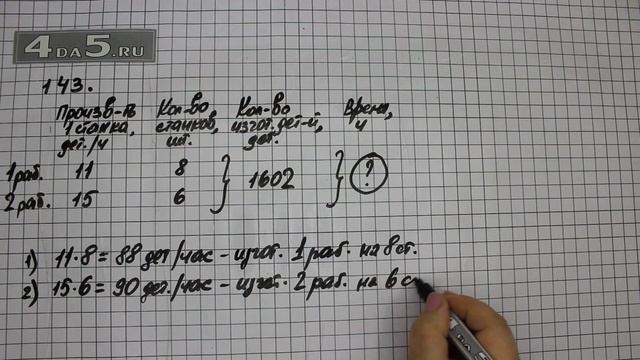 4DA5.RU
143.
Произв-ть Кол-во Кол-во Время,
1 станка, станков, изгот. дет-й, ч
дет./ч шт. дет.
1 раб. 11 8 1602 ?
2 раб. 15 6
1) 11·8 = 88 дет/час - изгот. 1 раб. на 8 ст.
2) 15·6 = 90 дет./час - изгот. 2 раб. на 6 с
4DA5